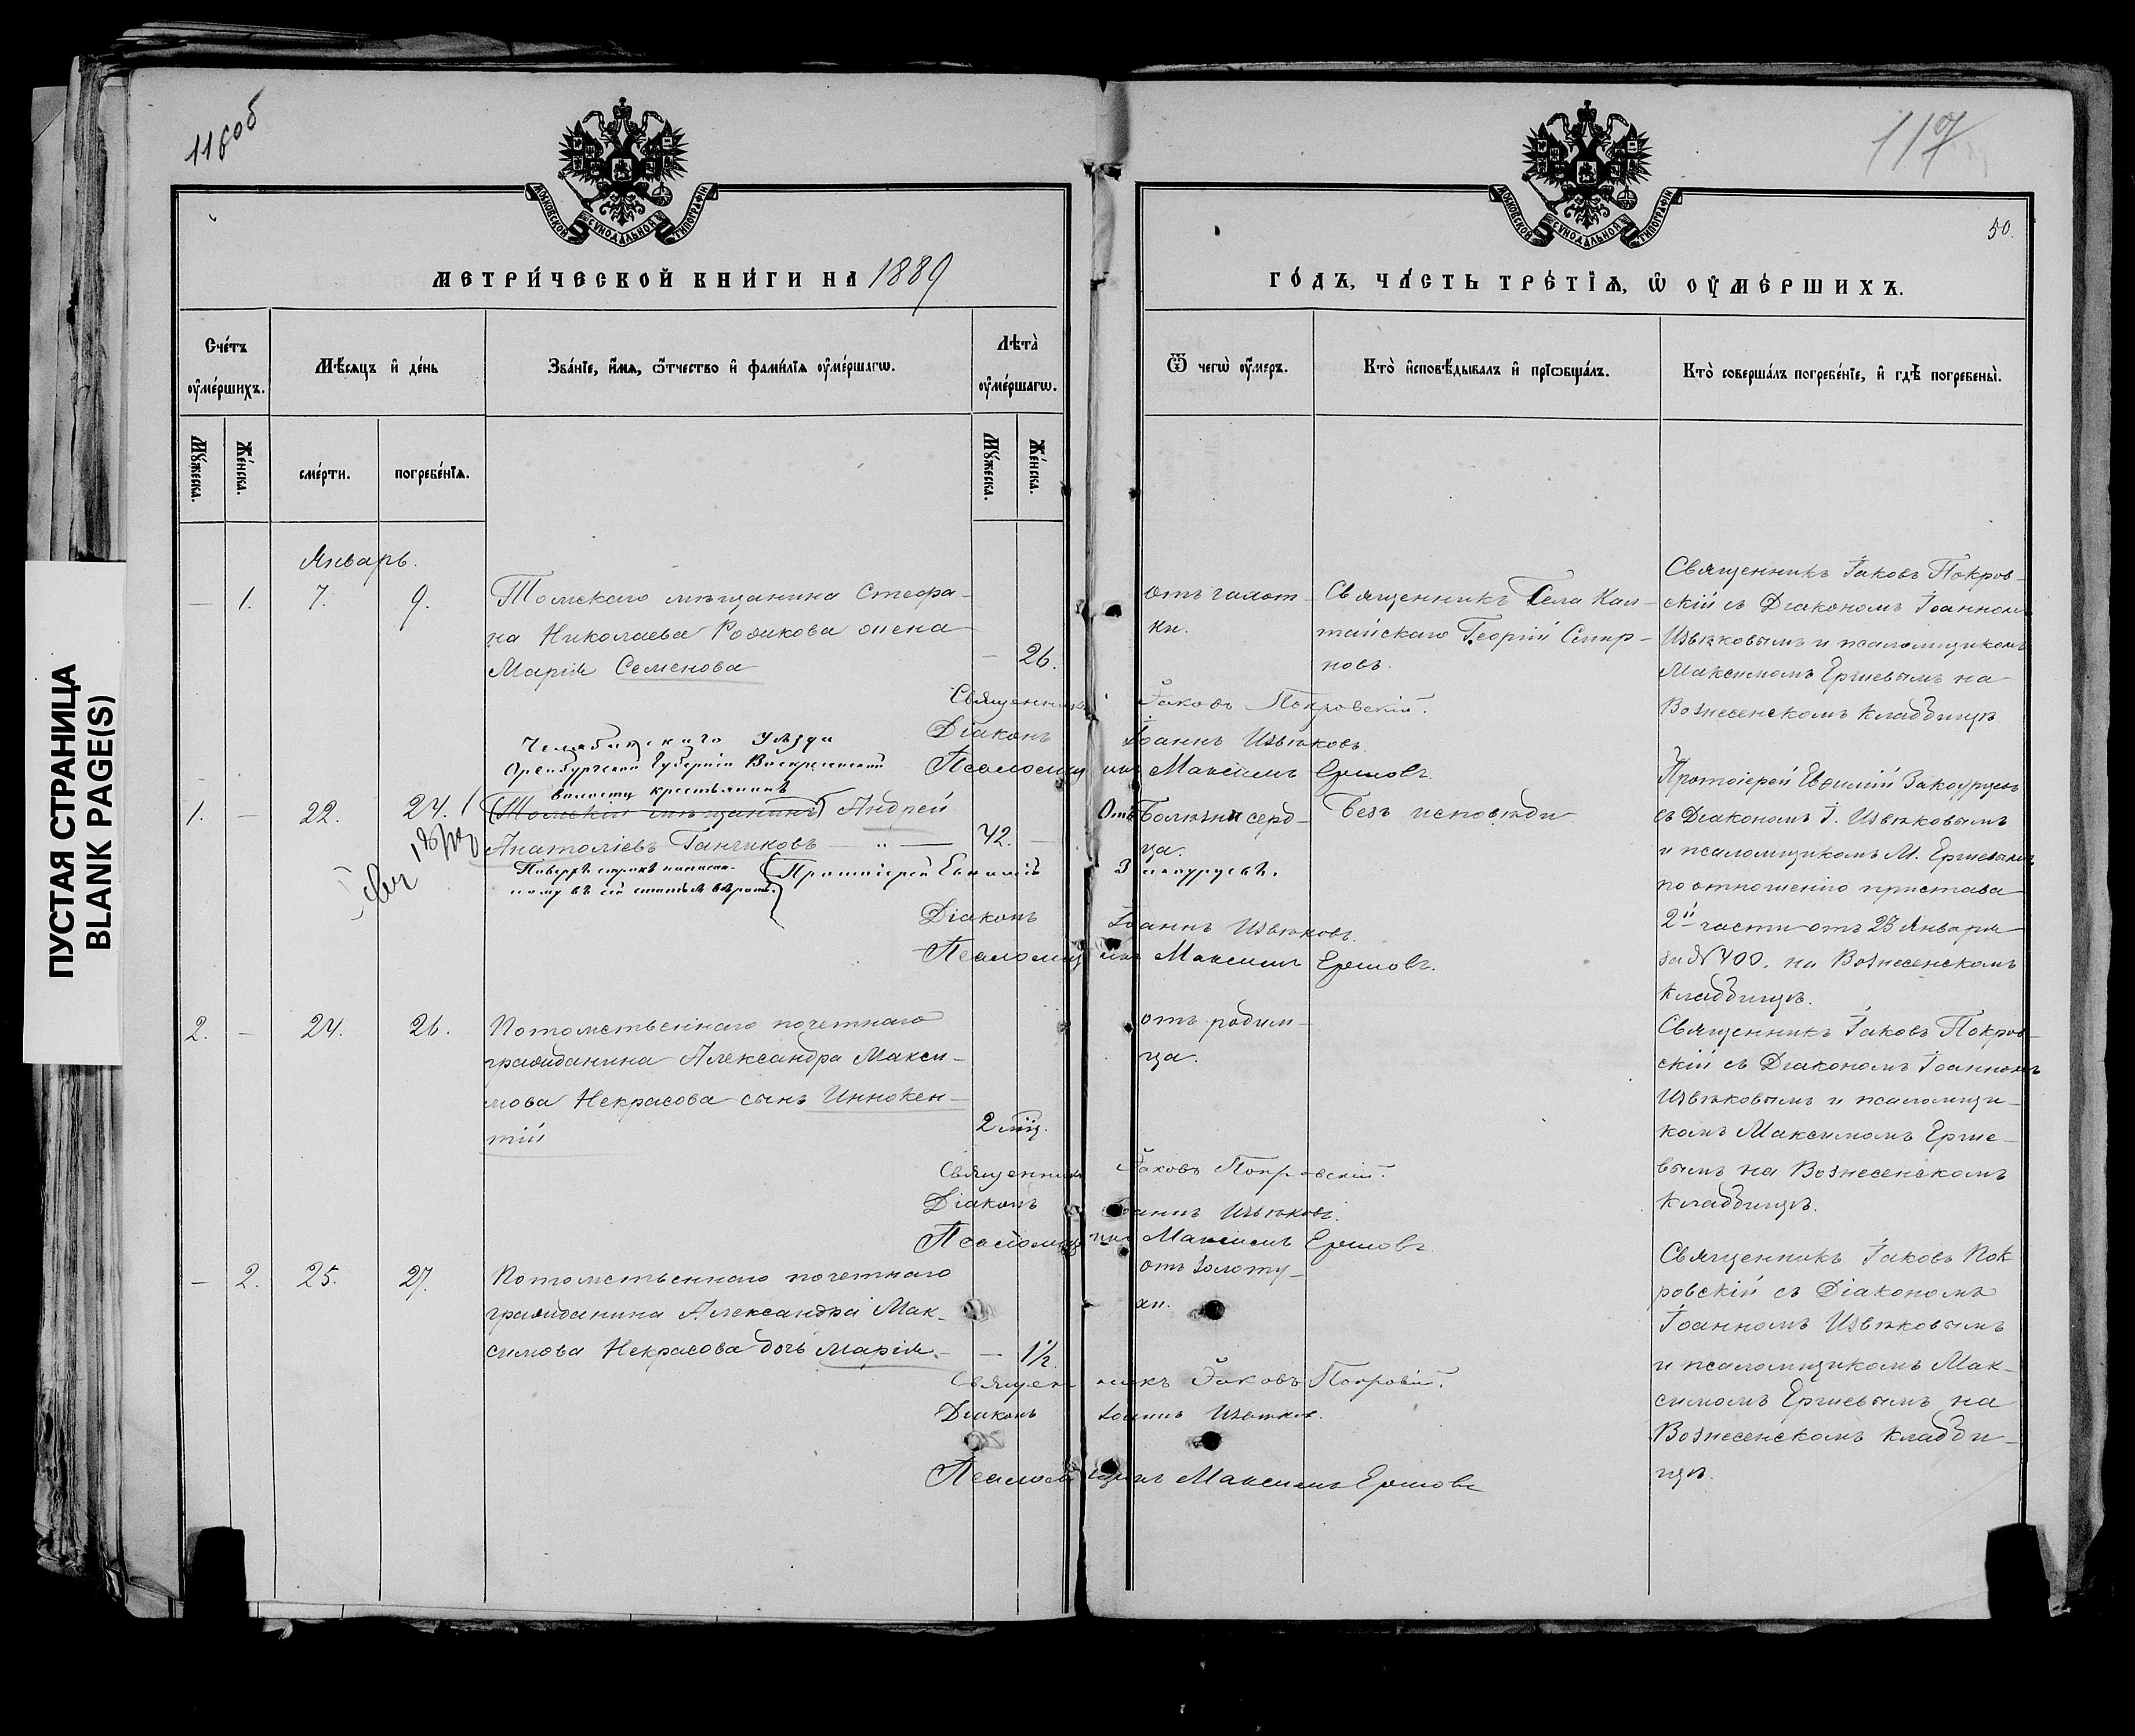 116об
117
50.
МОСКОВСКОЙ СѴНОДАЛЬНОЙ ТИПОГРАФІИ
МОСКОВСКОЙ СѴНОДАЛЬНОЙ ТИПОГРАФІИ
МЕТРИ́ЧЕСКОЙ КНИ́ГИ НА 1889
ГО́ДЪ, ЧА́СТЬ ТРЕ́ТІѦ, Ѡ҆ ОУ҆МЕ́РШИХЪ.
Сче́тъ оу҆ме́ршихъ.
Мѣ́сяцъ и҆ де́нь
Зва́ніе, и҆́мя, ѻ҆́тчество и҆ фами́лія оу҆ме́ршагѡ.
Лѣта̀ оу҆ме́ршагѡ.
Ѿ чегѡ̀ оу҆́меръ.
Кто̀ и҆сповѣ́дывалъ и҆ прїѡбща́лъ.
Кто̀ соверша́лъ погребе́ніе, и҆ гдѣ̀ погребены̀.
Му́жеска.
Же́нска.
сме́рти.
погребе́нія.
Му́жеска.
Же́нска.
Январь.
— 1. 7. 9.
Томскаго мѣщанина Стефа-
на Николаева Рожикова жена
Марія Семенова — 26.
отъ чахот-
ки.
Священникъ Села Кал-
тайскаго Георгій Смир-
новъ.
Священникъ Іаковъ Покров-
скій съ Діакономъ Іоанномъ
Извѣковымъ и псаломщикомъ
Максимомъ Ершевымъ на
Вознесенскомъ кладбищѣ
Священникъ Іаковъ Покровскій.
Діаконъ Іоаннъ Извѣковъ.
Псаломщикъ Максимъ Ершовъ.
1. — 22. 24.
Челябинскаго Уѣзда
Оренбургской Губерніи Воскресенской
волости крестьянинъ
(Томскій мѣщанинъ) Андрей
Анатоліевъ Ганчиковъ — „ — 42. —
Поверхъ строкъ написан-
ному въ сей статьѣ вѣрить.
Протоіерей Евѳимій Закоурцевъ.
Отъ болѣзни серд-
ца.
Безъ исповѣди
Протоіерей Евѳимій Закоурцевъ
съ Діакономъ І. Извѣковымъ
и псаломщикомъ М. Ершевымъ
по отношенію пристава
2й части отъ 23 Января
за № 400. на Вознесенскомъ
кладбищѣ.
Діаконъ Іоаннъ Извѣковъ.
Псаломщикъ Максимъ Ершовъ.
2. — 24. 26.
Потомственнаго почетнаго
гражданина Александра Макси-
мова Некрасова сынъ Иннокен-
тій
2 мѣц.
отъ родим-
ца.
Священникъ Іаковъ Покров-
скій съ Діакономъ Іоанномъ
Извѣковымъ и псаломщи-
комъ Максимомъ Ерше-
вымъ на Вознесенскомъ
кладбищѣ.
Священникъ Іаковъ Покровскій.
Діаконъ Іоаннъ Извѣковъ.
Псаломщикъ Максимъ Ершовъ
— 2. 25. 27.
Потомственнаго почетнаго
гражданина Александра Мак-
симова Некрасова дочь Марія. — 1½.
отъ золоту-
хи.
Священникъ Іаковъ Пок-
ровскій съ Діакономъ
Іоанномъ Извѣковымъ
и псаломщикомъ Мак-
симомъ Ершевымъ на
Вознесенскомъ кладби-
щѣ.
Священникъ Іаковъ Покровскій.
Діаконъ Іоаннъ Извѣковъ.
Псаломщикъ Максимъ Ершовъ
ПУСТАЯ СТРАНИЦА
BLANK PAGE(S)